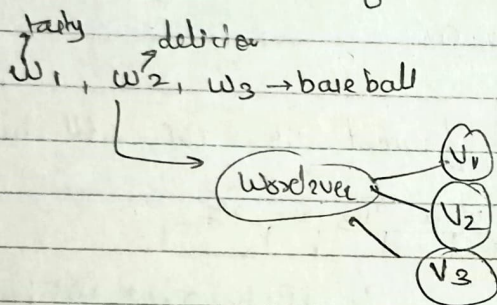 tasty
delicious
w1, w2, w3 → baseball
Word2vec
V1
V2
V3